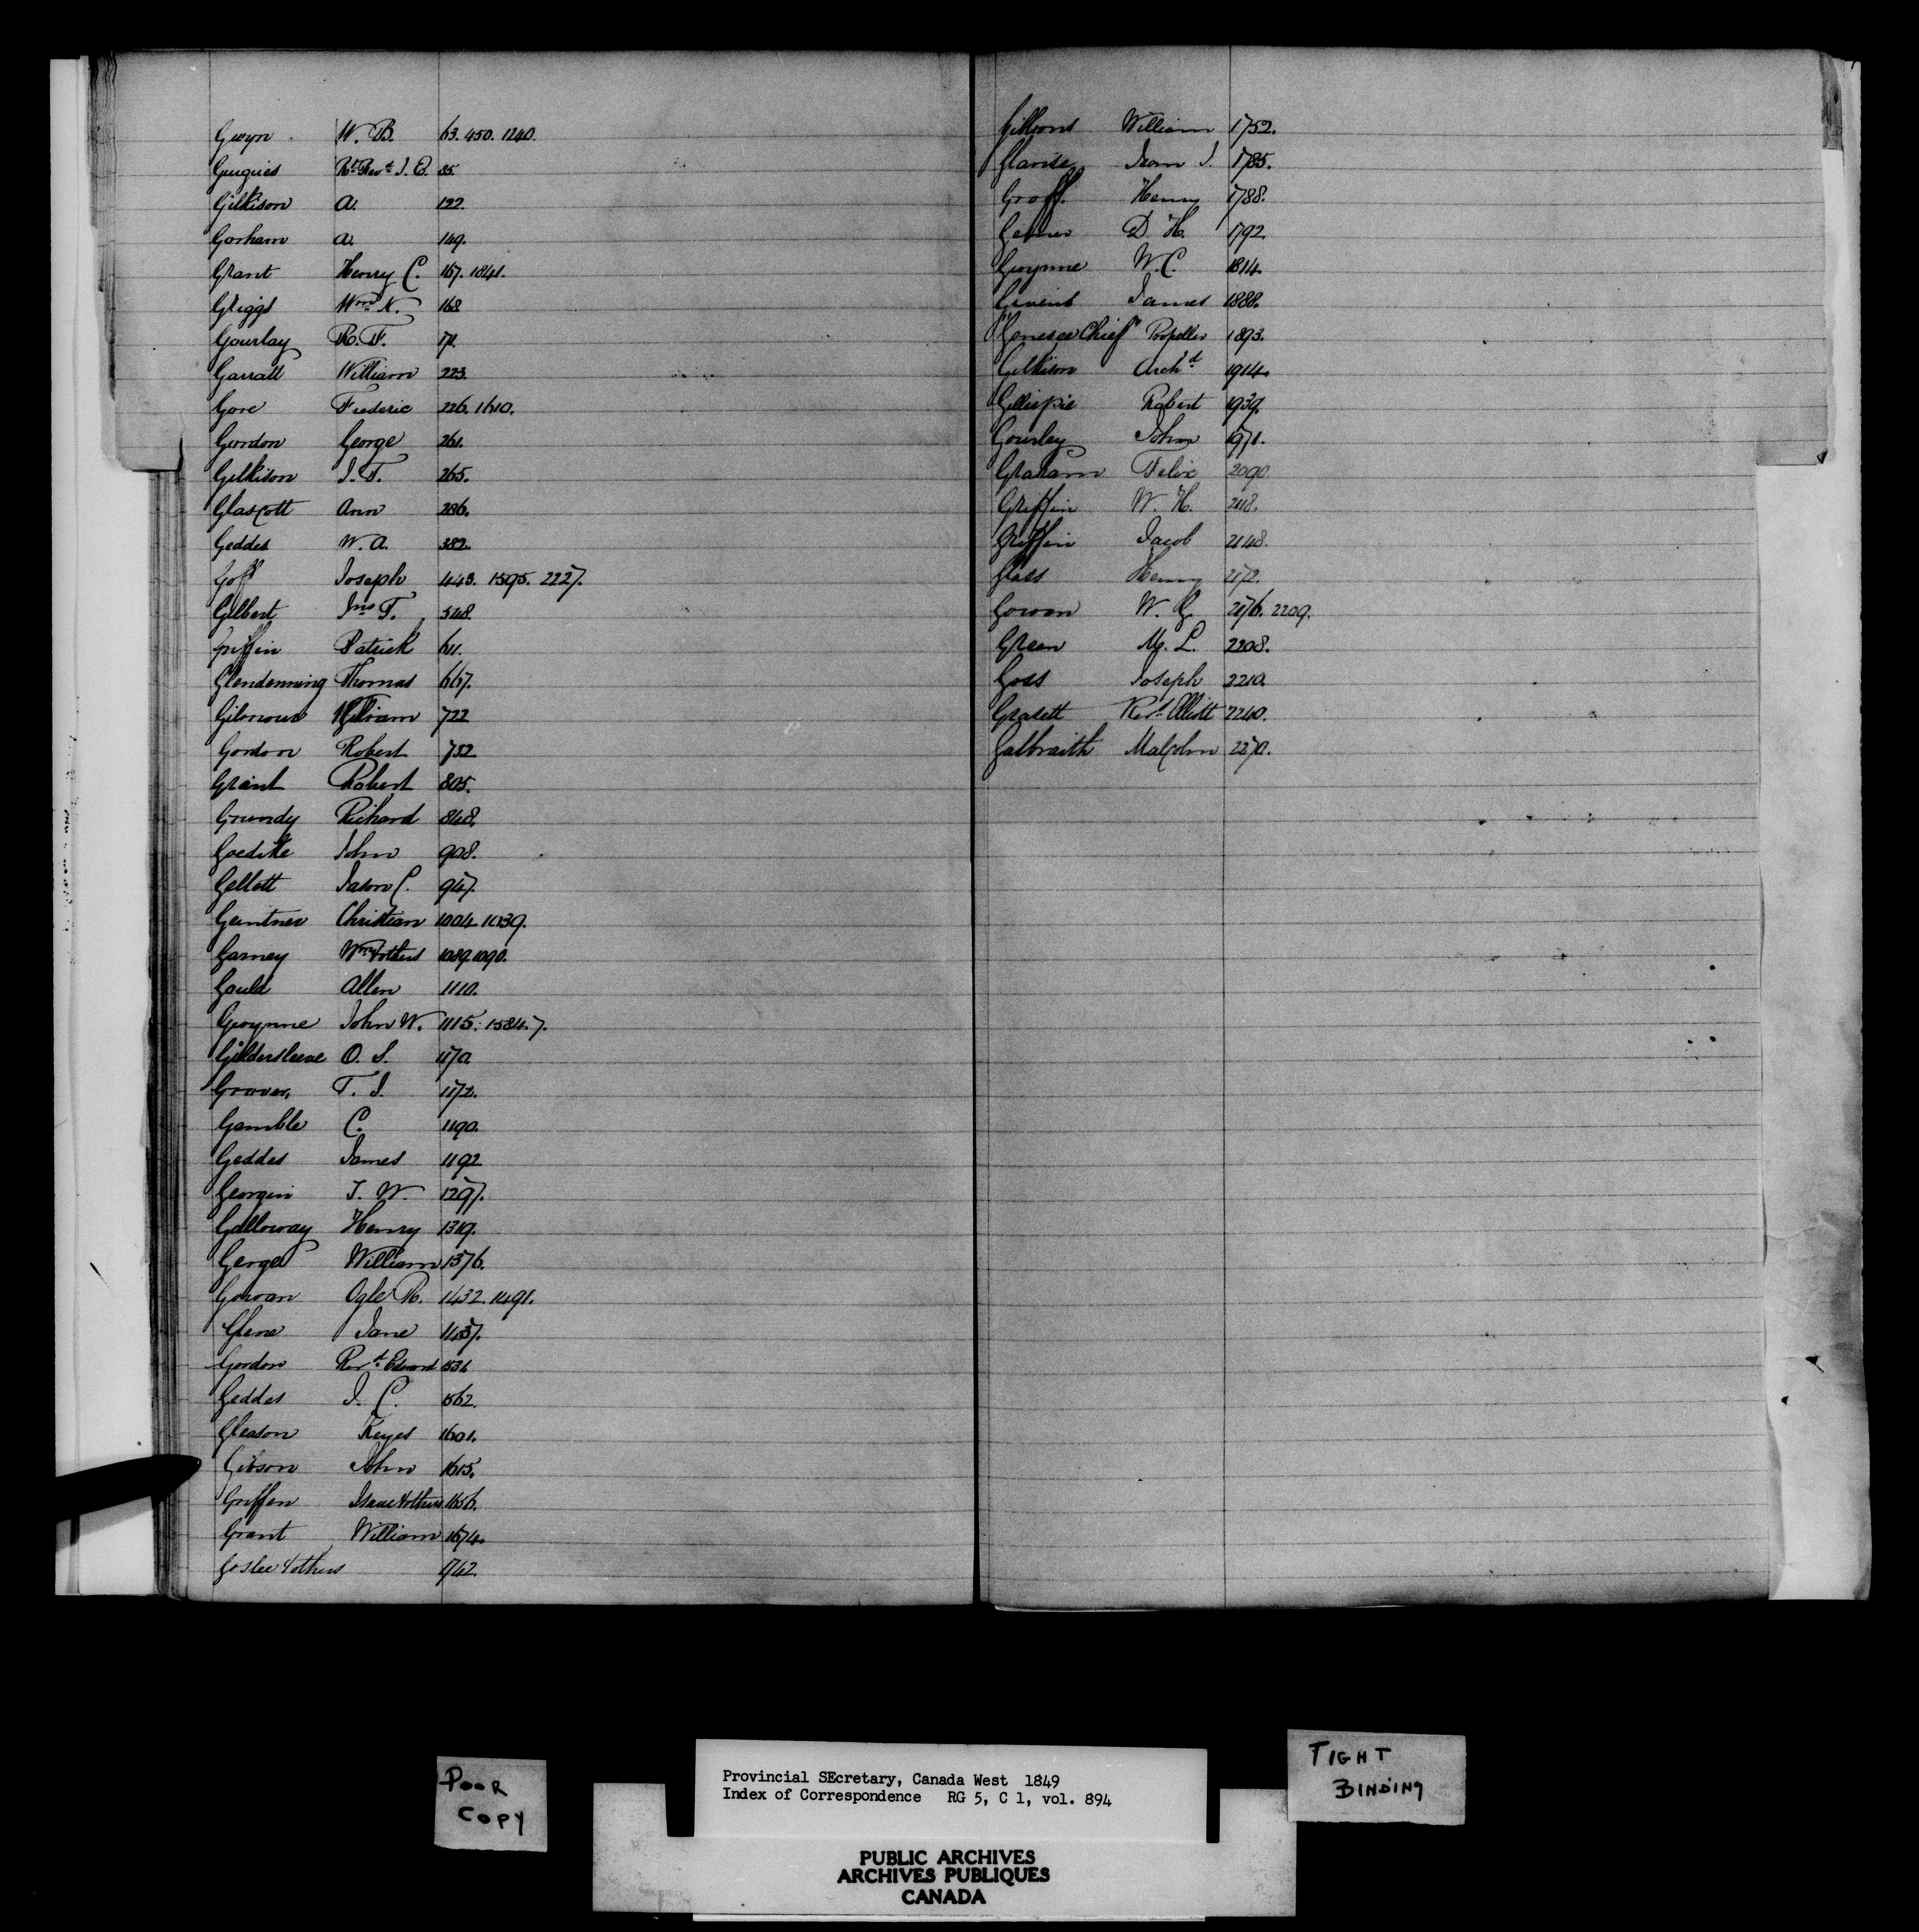 Gwyn W. B. 63. 450. 1240.
Guigues Rt. Revd. J. E. 85
Gilkison A. 122.
Gorham A. 149.
Grant Henry C. 167. 1841.
Griggs Wm. K. 168
Gourlay R. F. 171.
Garrall William 223.
Gore Frederic 226. 1610.
Gordon George 261.
Gilkison J. T. 265.
Glascott Ann 286.
Geddes W. A. 382.
Goff Joseph 443. 1595. 2227.
Gilbert Jno T. 548.
Griffin Patrick 611.
Glendenning Thomas 667.
Gilmour William 722
Gordon Robert 732
Grant Robert 805.
Grundy Richard 848.
Goedike John 908.
Gellott Jason C. 947.
Geintner Christian 1004. 1039.
Garney Wm & others 1089. 1090.
Gould Allen 1110.
Gwynne John W. 1115. 1584.7.
Gildersleeve O. S. 1170.
Graves, T. J. 1172.
Gamble C. 1190.
Geddes James 1192.
Georgin J. W. 1297.
Galloway Henry 1319.
George William 1376.
Gowan Ogle R. 1432. 1491.
Glene Jane 1437.
Gordon Revd. Edward 1531
Geddes J. C. 1562.
Gleason Keyes 1601.
Gibson John 1615.
Griffen Isaac & others 1656.
Grant William 1674.
Goslee & others 1742.
Gibbons William 1752.
Henry 1788.
Groff.
D. H. 1792.
Gwynne W. C. 1814.
Givens James 1888.
"Genesee Chief" Propeller 1893.
Gilkison Archd. 1914.
Gillispie Robert 1939.
Gourlay John 1971.
Graham Felix 2090.
Griffin W. H. 2118.
Griffin Jacob 2148.
Glass Henry 2172.
Gowan W. G. 2176. 2209.
Green M. L. 2208.
Goss Joseph 2210.
Grasett Revd. Elliott 2240.
Galbraith Malcolm 2270.
POOR
COPY
Provincial SEcretary, Canada West 1849
Index of Correspondence RG 5, C 1, vol. 894
TIGHT
BINDING
PUBLIC ARCHIVES
ARCHIVES PUBLIQUES
CANADA